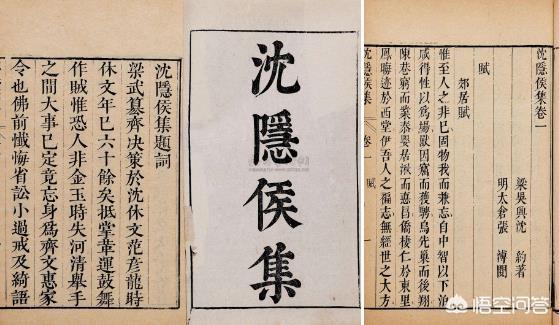 沈隱侯集題詞
梁武篡齊決策於沈休文范彥龍時
休文年巳六十餘矣抵掌革運鼓舞
作賊惟恐人非金玉時失河清舉手
之間大事巳定竟忘身爲齊文惠家
令也佛前懺悔省訟小過戒及綺語
沈隱侯集
沈隱侯集卷一
梁吳興沈 約著
明太倉張 溥閱
賦
郊居賦
惟至人之非巳固物我而兼忘自中智以下洎
咸得性以爲場獸因窟而獲騁鳥先巢而後翔
陳巷窮而業泰嬰居湫而德昌僑棲仁於東里
鳳晦迹於西堂伊吾人之褊志無經世之大方
沈隱侯集 卷一 賦
悟空问答